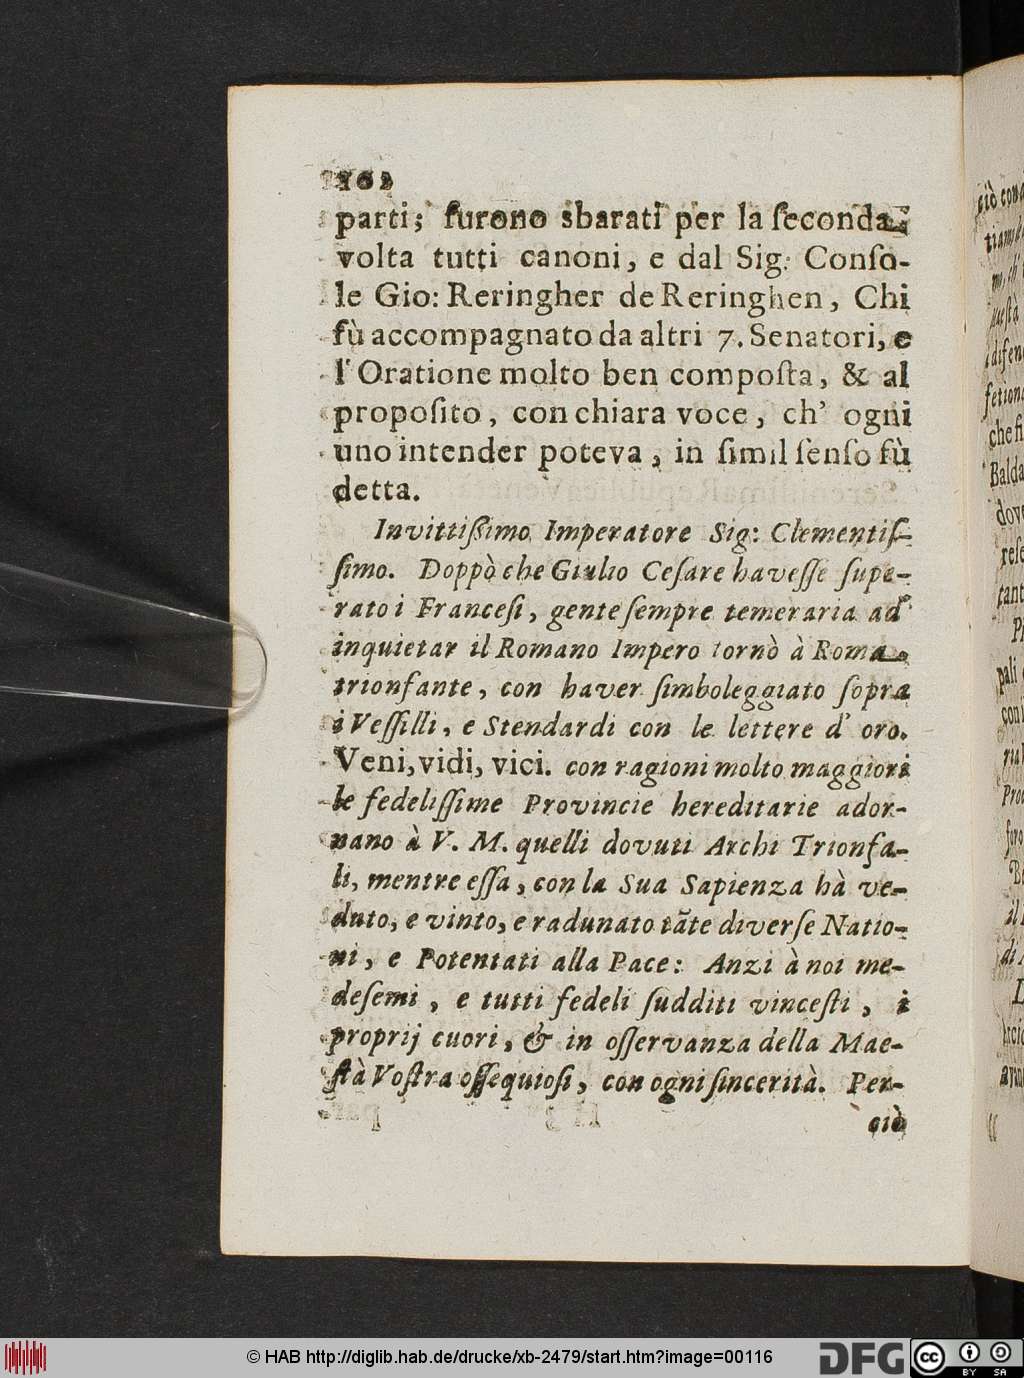 102
parti; furono sbarati per la ſeconda
volta tutti canoni, e dal Sig: Conſo-
le Gio: Reringher de Reringhen, Chi
fù accompagnato da altri 7. Senatori, e
l'Oratione molto ben compoſta, & al
propoſito, con chiara voce, ch' ogni
uno intender poteva, in ſimil ſenſo fù
detta.
Invittiſſimo Imperatore Sig: Clementiſ-
ſimo. Doppò che Giulio Ceſare haveſſe ſupe-
rato i Franceſi, gente ſempre temeraria ad
inquietar il Romano Impero tornò à Roma
trionfante, con haver ſimboleggiato ſopra
i Veſſilli, e Stendardi con le lettere d' oro.
Veni, vidi, vici. con ragioni molto maggiori
le fedeliſſime Provincie hereditarie ador-
nano à V. M. quelli dovuti Archi Trionfa-
li, mentre eſſa, con la Sua Sapienza hà ve-
duto, e vinto, e radunato tãte diverſe Natio-
ni, e Potentati alla Pace: Anzi à noi me-
deſemi, e tutti fedeli ſudditi vinceſti, i
proprij cuori, & in oſſervanza della Mae-
ſtà Voſtra oſſequioſi, con ogni ſincerità. Per-
ciò
© HAB http://diglib.hab.de/drucke/xb-2479/start.htm?image=00116
DFG
cc
BY SA